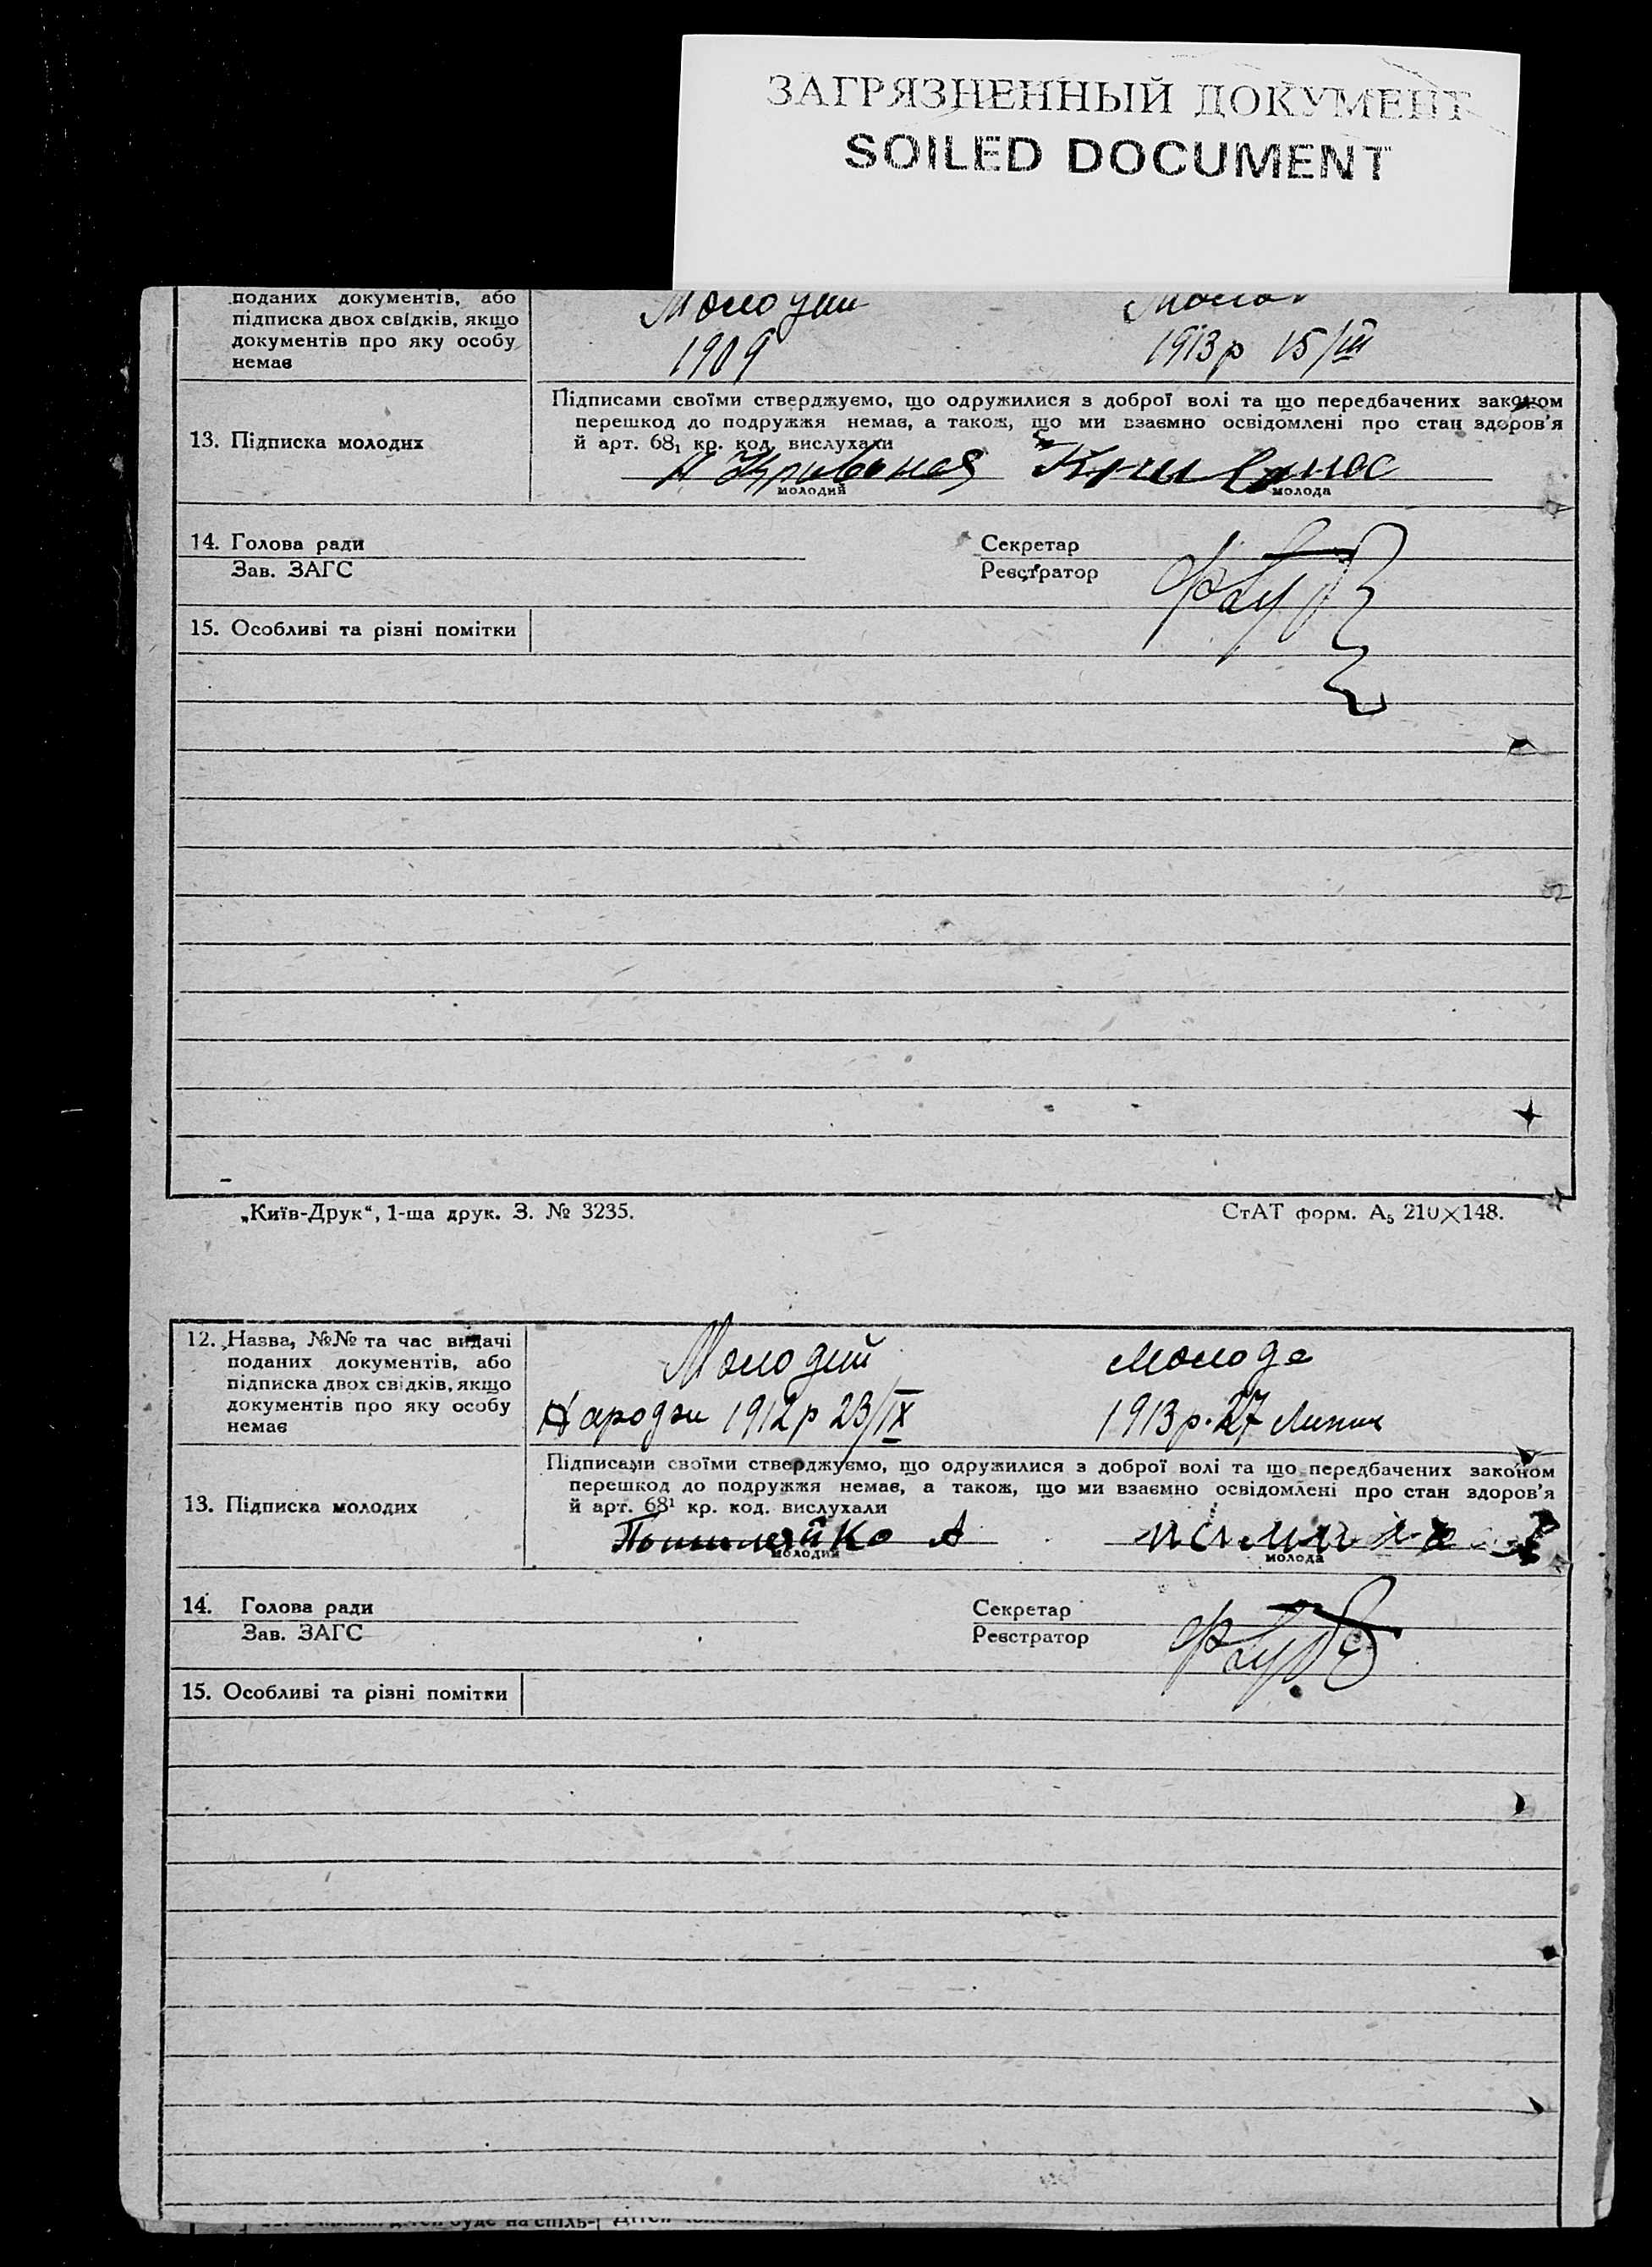 ЗАГРЯЗНЕННЫЙ ДОКУМЕНТ
SOILED DOCUMENT
поданих документів, або
підписка двох свідків, якщо
документів про яку особу
немає
Молодий
1909 1913 р 15/III
Підписами своїми стверджуємо, що одружилися з доброї волі та що передбачених законом
перешкод до подружжя немає, а також, що ми взаємно освідомлені про стан здоров'я
й арт. 68₁ кр. код. вислухали
13. Підписка молодих
молодий молода
14. Голова ради Секретар
Зав. ЗАГС Реєстратор
15. Особливі та різні помітки
„Київ-Друк“, 1-ша друк. З. № 3235. СтАТ форм. А₅ 210×148.
12. Назва, №№ та час видачі
поданих документів, або
підписка двох свідків, якщо
документів про яку особу
немає
Молодий молода
Народжен 1912 р 23/IX 1913 р. 27 Липня
Підписами своїми стверджуємо, що одружилися з доброї волі та що передбачених законом
перешкод до подружжя немає, а також, що ми взаємно освідомлені про стан здоров'я
й арт. 68¹ кр. код. вислухали
13. Підписка молодих
молодий молода
14. Голова ради Секретар
Зав. ЗАГС Реєстратор
15. Особливі та різні помітки